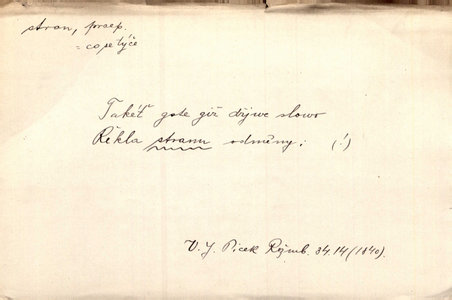 stran, praep.
= co se týče
Takéť gste giž dřjwe slowo
Řekla stranu odměny: (!)
V. J. Picek Rýmb. 34.14 (1840).